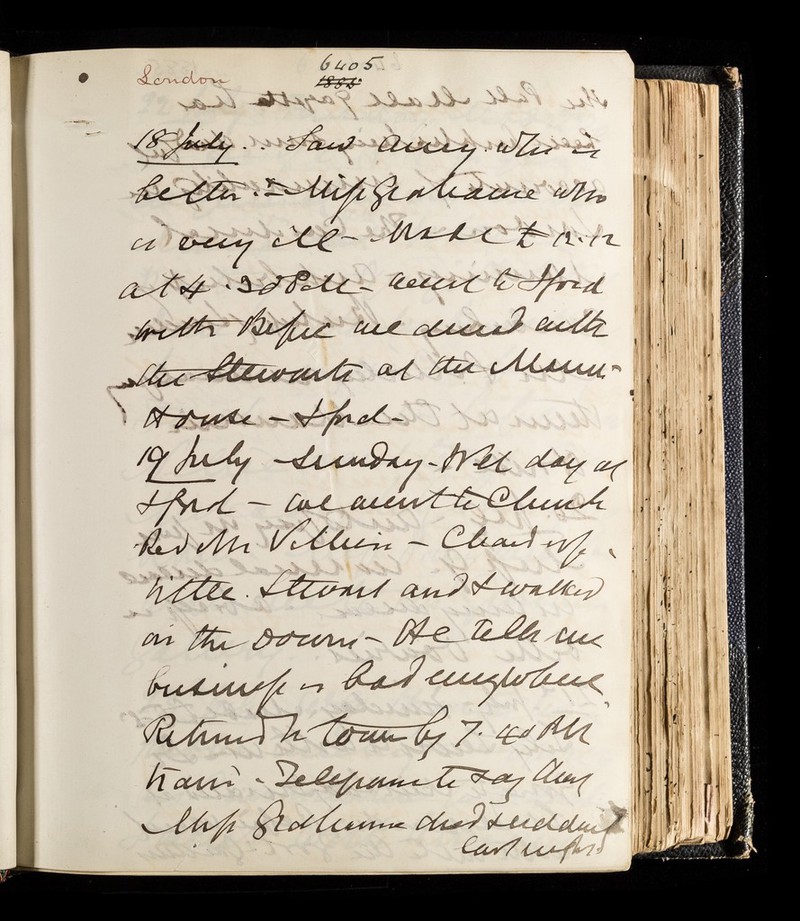 London
6405
1885
18 July. Saw Amy who is
better. - Miss Grahame who
is very ill - 
at 4.30 PM - went to Iford
with Bessie we dined with
the Stewarts at the Manor
House - Iford -
19 July - Sunday - Wet day at
Iford - we went to Church
Rev Mr Villiers - Cleared up
little. Stewart and I walked
on the Downs - He tells me
business is bad everywhere
Returned to town by 7.40 PM
train - Telegram to say that
Miss Grahame died suddenly